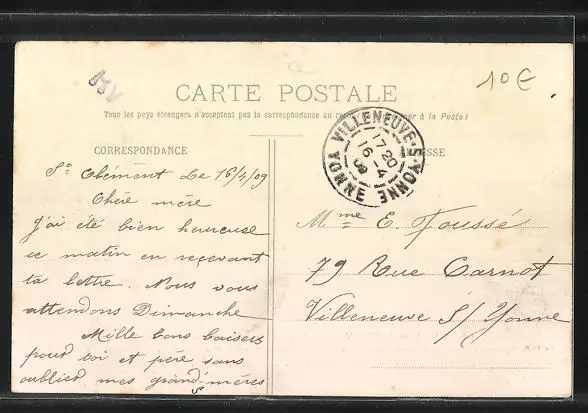 10€
CARTE POSTALE
Tous les pays étrangers n'acceptent pas la correspondance au à la Poste)
CORRESPONDANCE
VILLENEUVE-S-YONNE
YONNE
17 20
16 - 4
09
St Clément Le 16/4/09
Chère mère
J'ai été bien heureuse
ce matin en reçevant
ta lettre. Nous vous
attendons Dimanche
Mille bons baisers
pour toi et père sans
oublier mes grand-mères
Mme E. Foussé
79 Rue Carnot
Villeneuve S/ Yonne